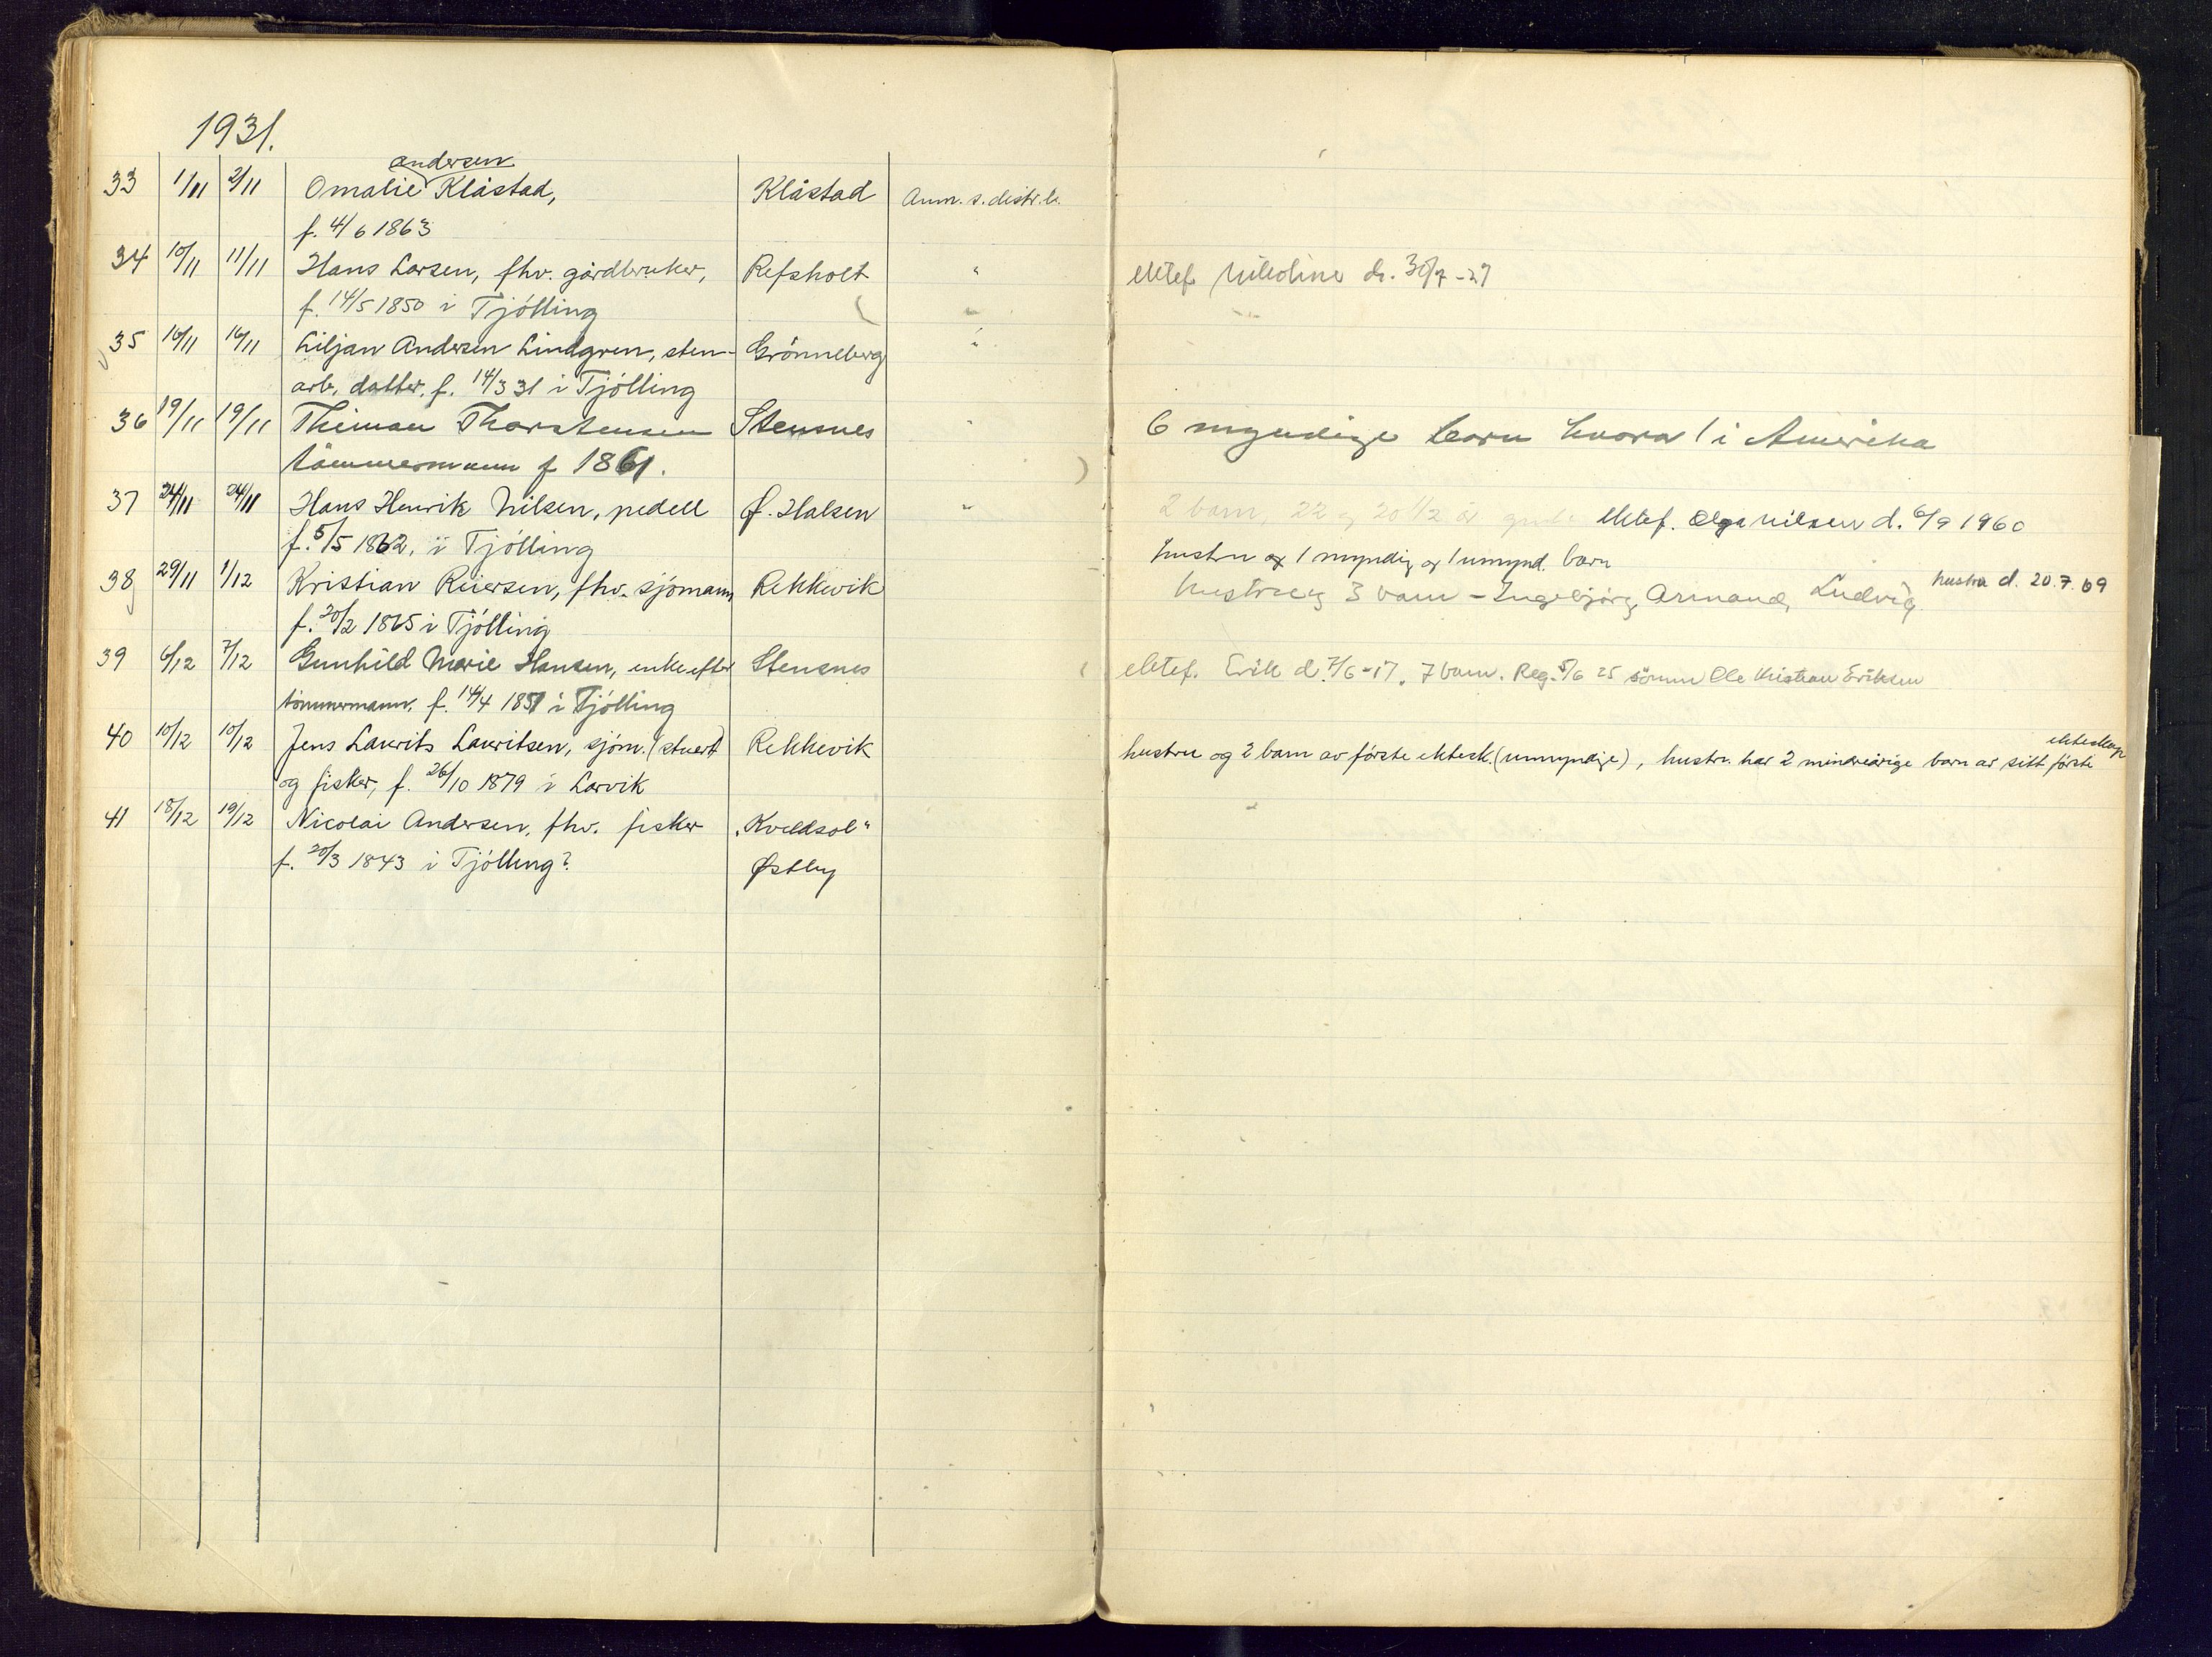 1931.
andersen
33 1/11 2/11 Omalie Klåstad, Klåstad Anm. s. distr.l.
f. 4/6 1863
34 10/11 11/11 Hans Larsen, fhv. gårdbruker, Refsholt " ektef. Nikoline d. 30/7-27
f. 14/5 1850 i Tjølling
35 10/11 10/11 Liljan Andersen Lindgren, sten- Grönneberg "
arb. datter, f. 14/3 31 i Tjølling
36 19/11 19/11 Thiman Thorstensen Stensnes " 6 myndige barn hvorav 1 i Amerika
tömmermann f 1861.
37 24/11 24/11 Hans Henrik Nilsen, pedell Ø. Halsen " 2 barn, 22 og 20 1/2 år ektef. Olga Nilsen d. 6/9 1960
f. 5/5 1862, i Tjølling
hustru og 1 myndig og 1 umynd. barn
38 29/11 1/12 Kristian Reiersen, fhv. sjømann, Rekkevik hustru og 3 barn - Ingebjørg, Armand, Ludvig hustru d. 20.7.69
f. 20/2 1865 i Tjølling
39 6/12 7/12 Gunhild Marie Hansen, enke efter Stensnes ektef. Erik d. 7/6-17. 7 barn. Reg. 5/6 25 sönnen Ole Kristian Eriksen
tömmermann, f. 14/4 1851 i Tjølling
40 10/12 10/12 Jens Laurits Lauritsen, sjöm. (stuert) Rekkevik hustru og 2 barn av förste ektesk. (umyndige), hustr. har 2 mindreårige barn av sitt förste ekteskap
og fisker, f. 26/10 1879 i Larvik
41 18/12 19/12 Nicolai Andersen, fhv. fisker "Kveldsol"
f. 20/3 1843 i Tjølling? Østby